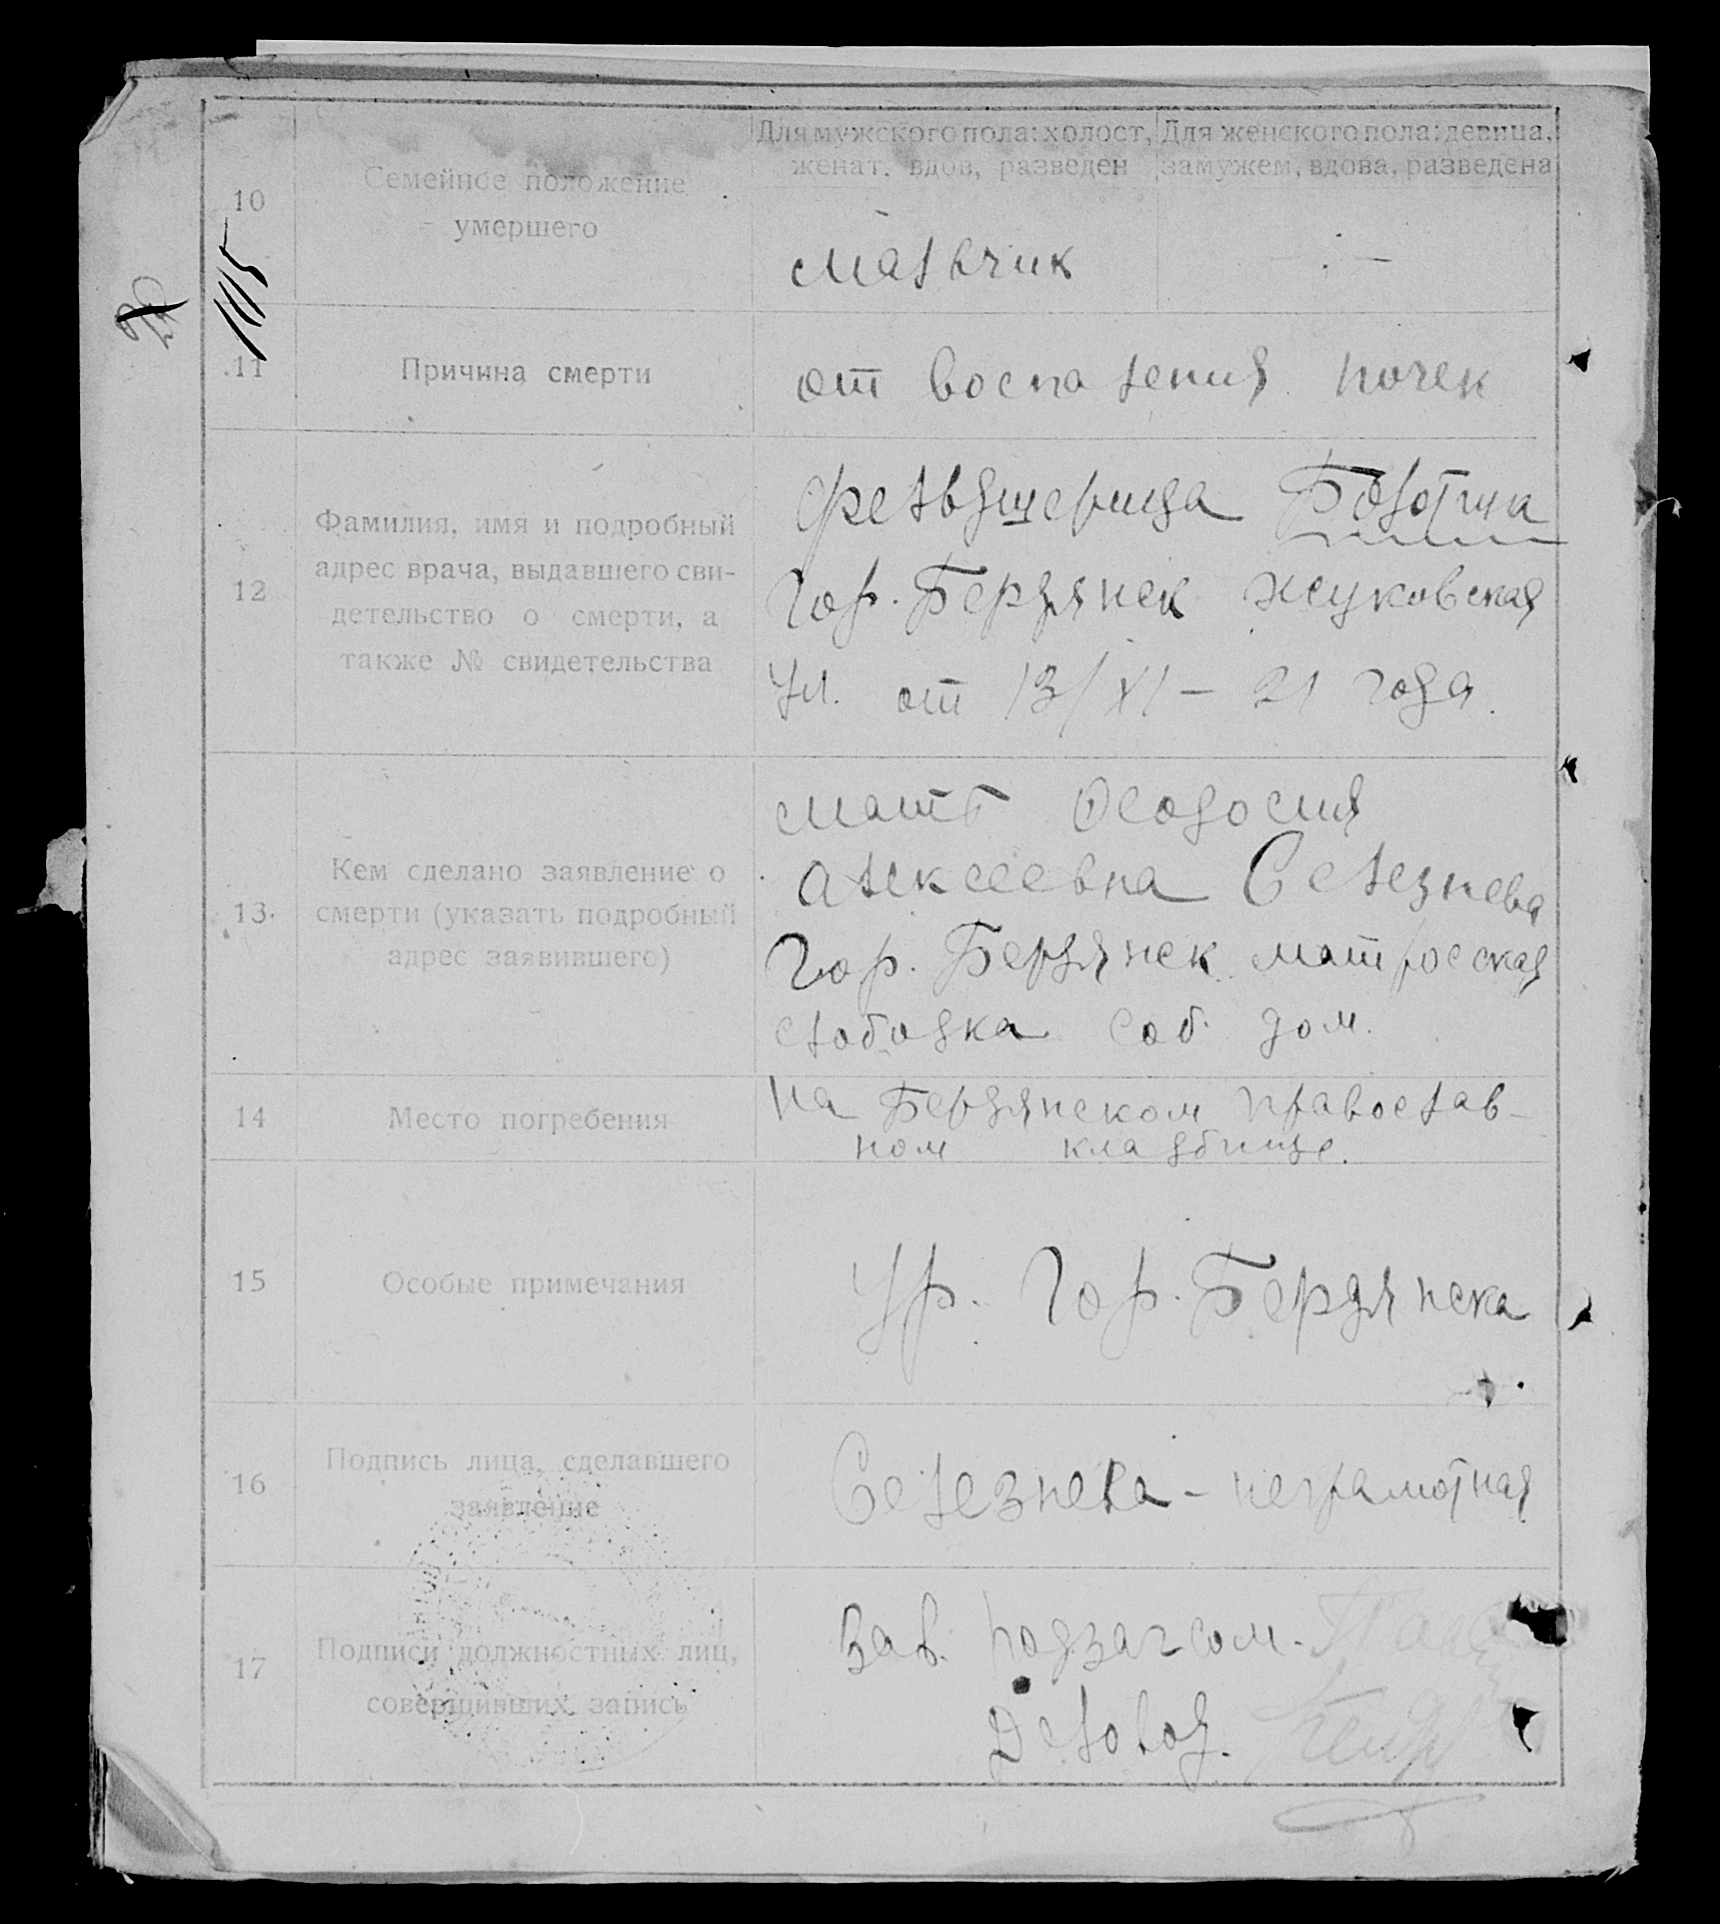 Для мужского пола: холост, женат, вдов, разведен
Для женского пола: девица, замужем, вдова, разведена
10
Семейное положение
умершего
мальчик
—
115
11
Причина смерти
от воспаления почек
12
Фамилия, имя и подробный
адрес врача, выдавшего сви-
детельство о смерти, а
также № свидетельства
фельдшерица
Гор. Бердянск Жуковская
ул. от 13/XI – 21 года.
13
Кем сделано заявление о
смерти (указать подробный
адрес заявившего)
мать Феодосия
Алексеевна Селезнева
Гор. Бердянск матросская
слободка соб. дом.
14
Место погребения
на Бердянском православ-
ном кладбище.
15
Особые примечания
Ур. Гор. Бердянска
16
Подпись лица, сделавшего
заявление
Селезнева – неграмотная
17
Подписи должностных лиц,
совершивших запись
Зав. подзагсом.
Деловод.